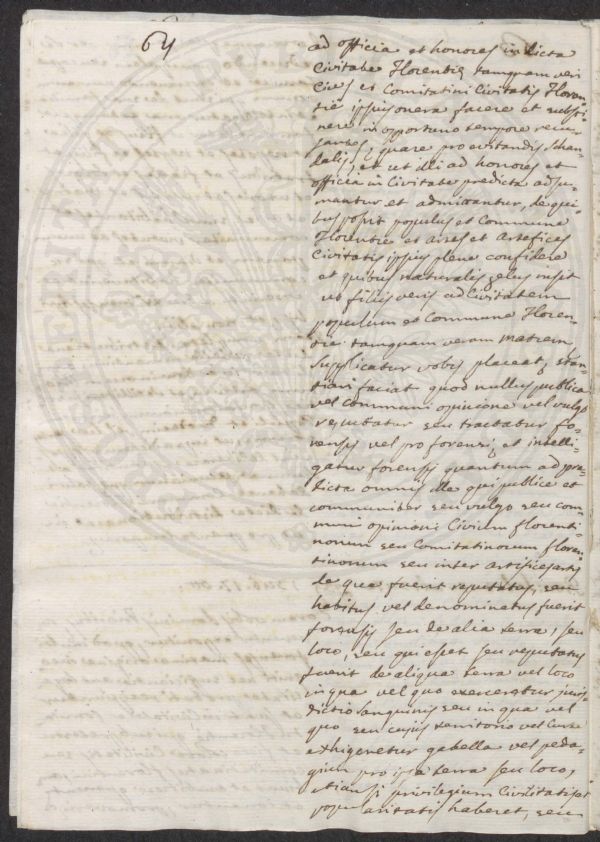 64
ad officia et honores in dicta
Civitate Florentie tamquam veri
Cives et Comitatini Civitatis Floren-
tie ipsius onera facere et substi-
nere in opportuno tempore recu-
santes, quare pro evitandis scan-
dalis, et ut illi ad honores et
officia in Civitate predicta adsu-
mantur et admittantur, de qui-
bus possit populus et Commune
Florentie et artes et artefices
Civitatis ipsius plene confidere
et quibus naturalis zelus insit
ut filiis veris ad Civitatem
populum et Commune Floren-
tie tamquam veram matrem
supplicatur vobis placeat, stan-
tiari faciat quod nullus publica
vel communi opinione vel vulgo
reputatur seu tractatur fo-
rensis vel pro forensi, et intelli-
gatur forensis quantum ad pre-
dicta omnis ille qui publice et
communiter seu vulgo seu com-
muni opinione Civium florenti-
norum seu Comitatinorum floren-
tinorum seu inter artifices artis
de qua fuerit reputatus, seu
habitus vel denominatus fuerit
forensis seu de alia terra, seu
loco, seu qui esset seu reputatus
fuerit de aliqua terra vel loco
in qua vel quo exerceretur juris-
dictio sanguinis seu in qua vel
quo seu cujus territorio vel Curte
exhigeretur gabella vel peda-
gium pro ipsa terra seu loco,
etiam si privilegium Civilitatis et
popularitatis haberet, seu